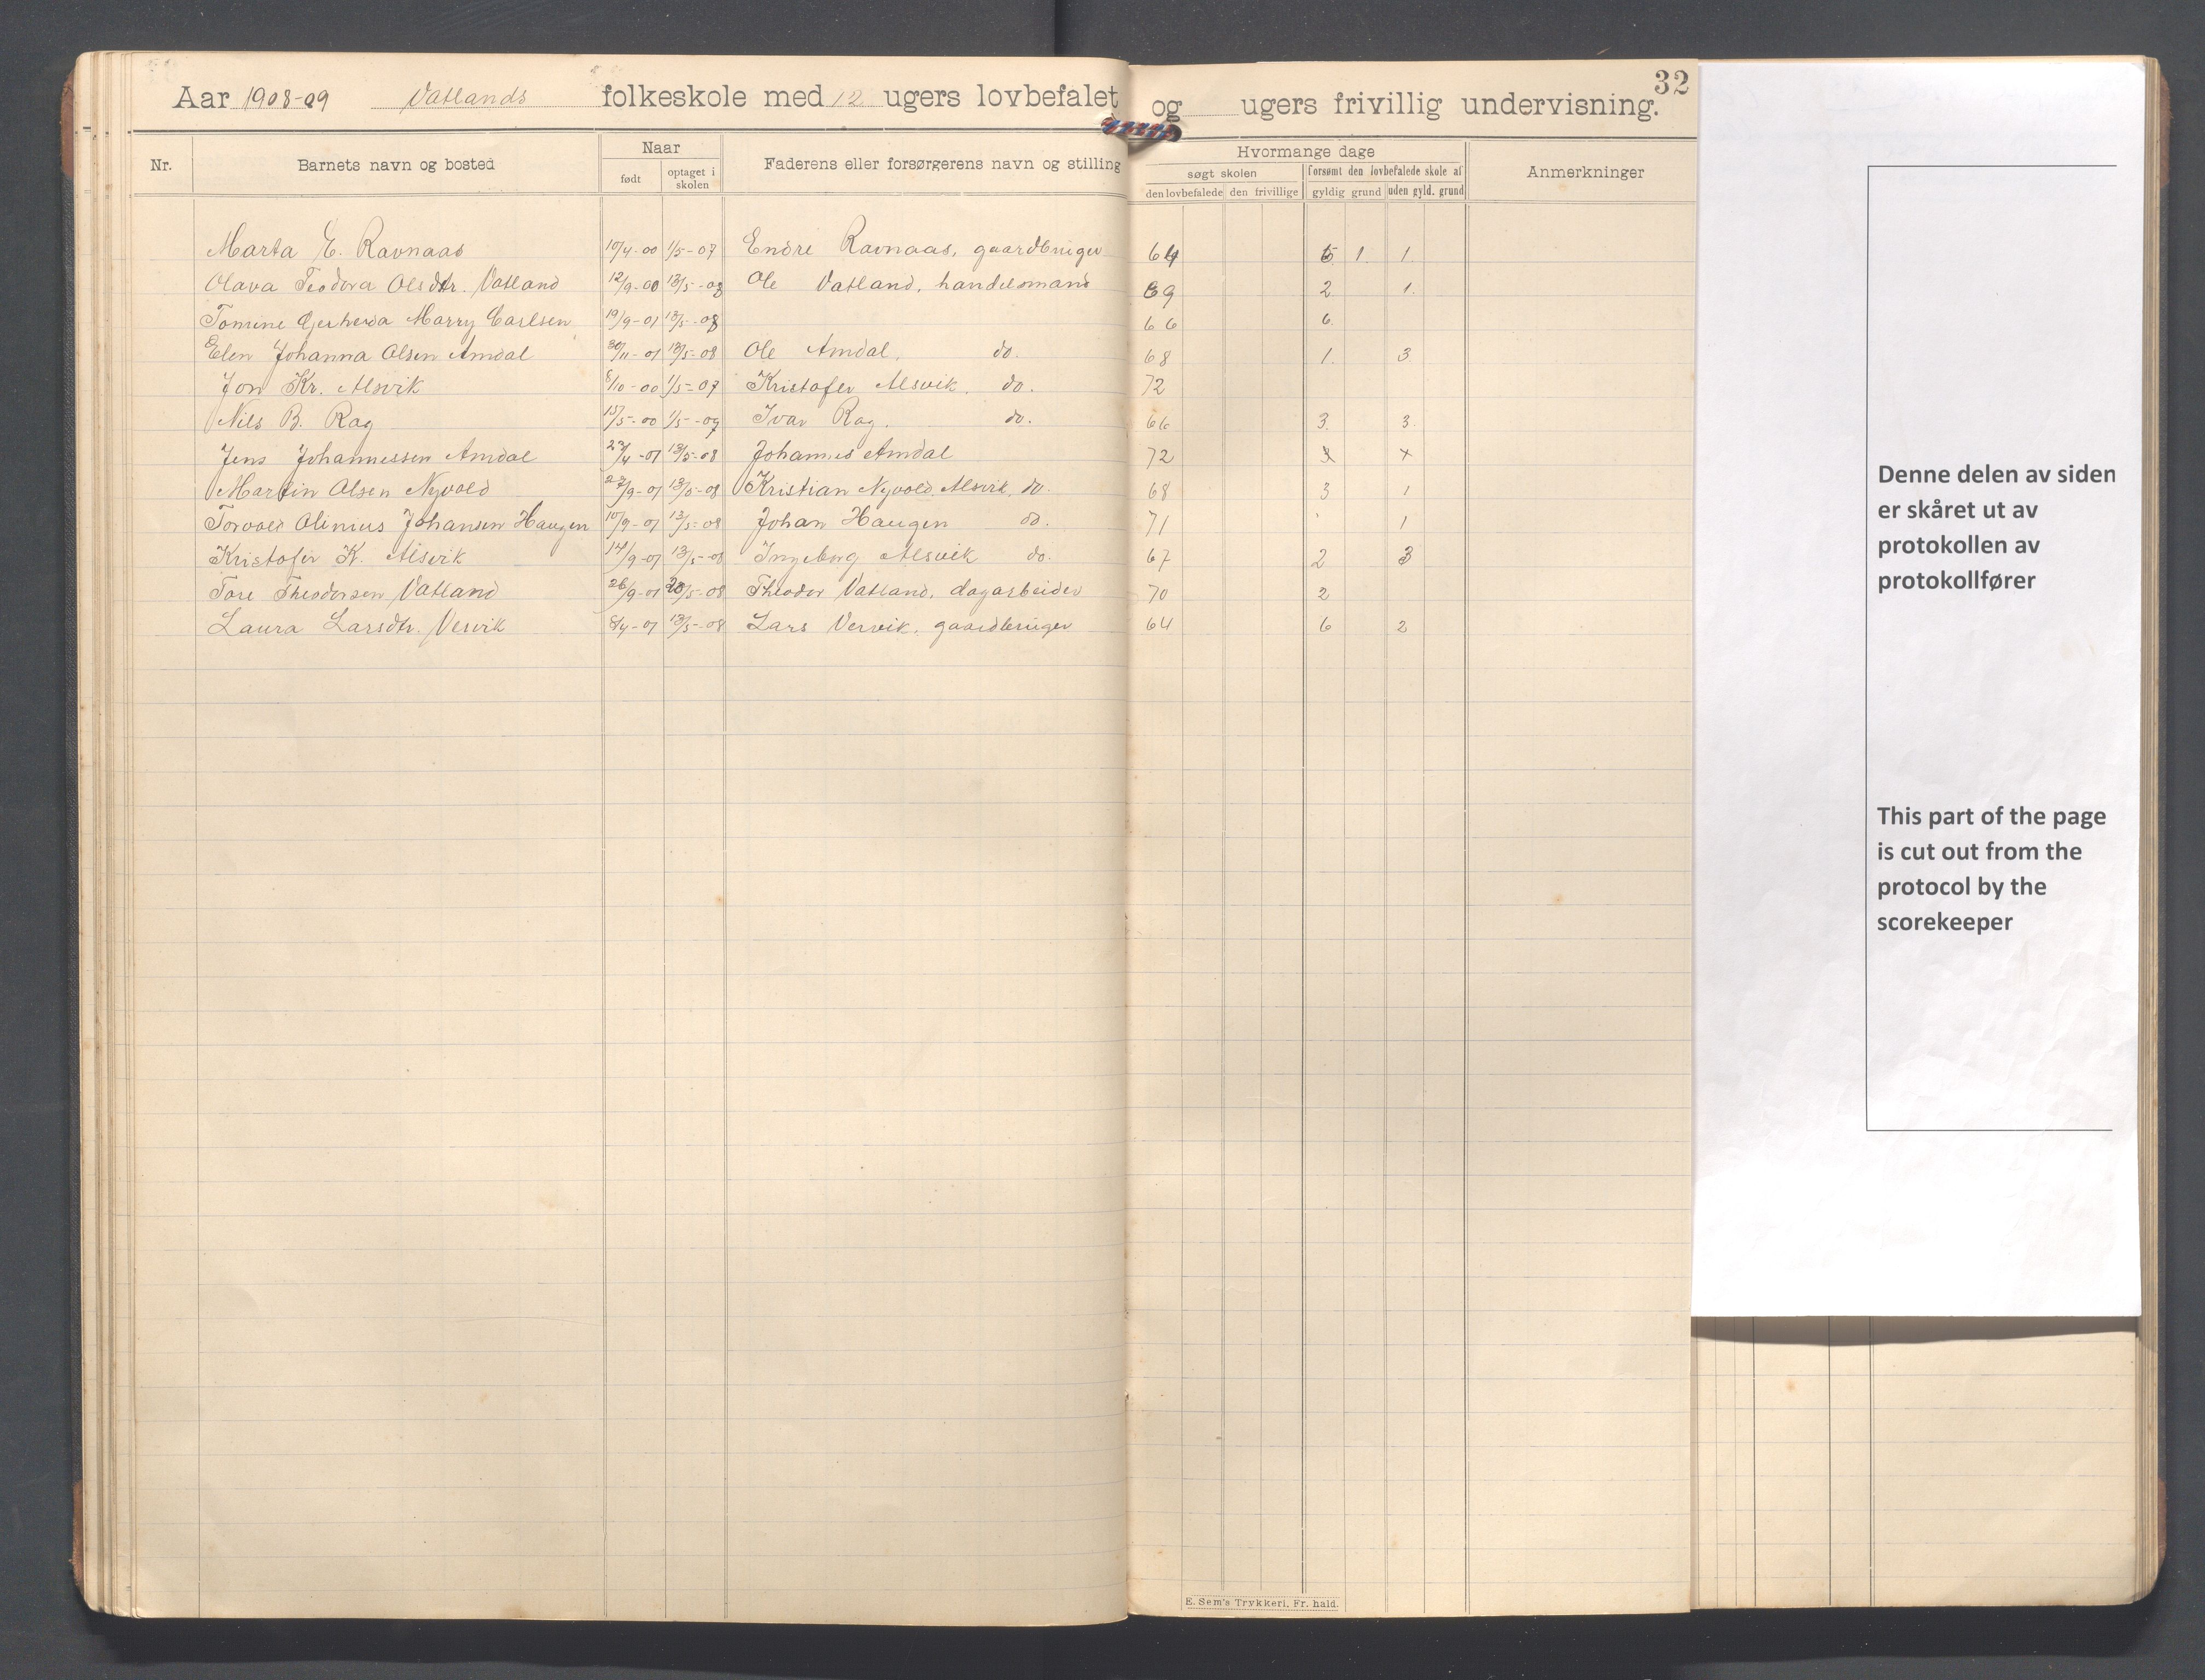 32
Aar 1908-09 Vatlands folkeskole med 12 ugers lovbefalet og ugers frivillig undervisning.
Nr. Barnets navn og bosted Naar født optaget i skolen Faderens eller forsørgerens navn og stilling Hvormange dage søgt skolen den lovbefalede den frivillige forsømt den lovbefalede skole af gyldig grund uden gyld. grund Anmerkninger
Marta E. Ravnaas 10/4-00 1/5-07 Endre Ravnaas, gaardbruger 64 5 1 1
Olava Teodora Olsdtr. Vatland 12/9-00 13/5-08 Ole Vatland, handelsmand 69 2 1.
Tomine Gerharda Marry Carlsen 19/9-01 13/5-08 66 6.
Elen Johanna Olsen Amdal 30/11-01 13/5-08 Ole Amdal, do. 68 1. 3.
Jon Kr. Alsvik 8/10-00 1/5-07 Kristofer Alsvik, do. 72
Nils B. Rag 15/5-00 1/5-07 Ivar Rag. do. 66 3. 3.
Jens Johannessen Amdal /4-01 13/5-08 Johannes Amdal 72 x
Martin Olsen Nyvold 27/9-01 13/5-08 Kristian Nyvold, Alsvik, do. 68 3 1
Torvald Olinius Johansen Haugen 10/9-01 13/5-08 Johan Haugen do. 71 1
Kristofer K. Alsvik 14/9-01 13/5-08 Ingeborg Alsvik do. 67 2 3
Tore Theodorsen Vatland 26/9-01 /5-08 Theodor Vatland, dagarbeider 70 2
Laura Larsdtr. Vervik 8/4-01 13/5-08 Lars Vervik, gaardbruger 64 6 2
E. Sem's Trykkeri, Fr. hald.
Denne delen av siden
er skåret ut av
protokollen av
protokollfører
This part of the page
is cut out from the
protocol by the
scorekeeper